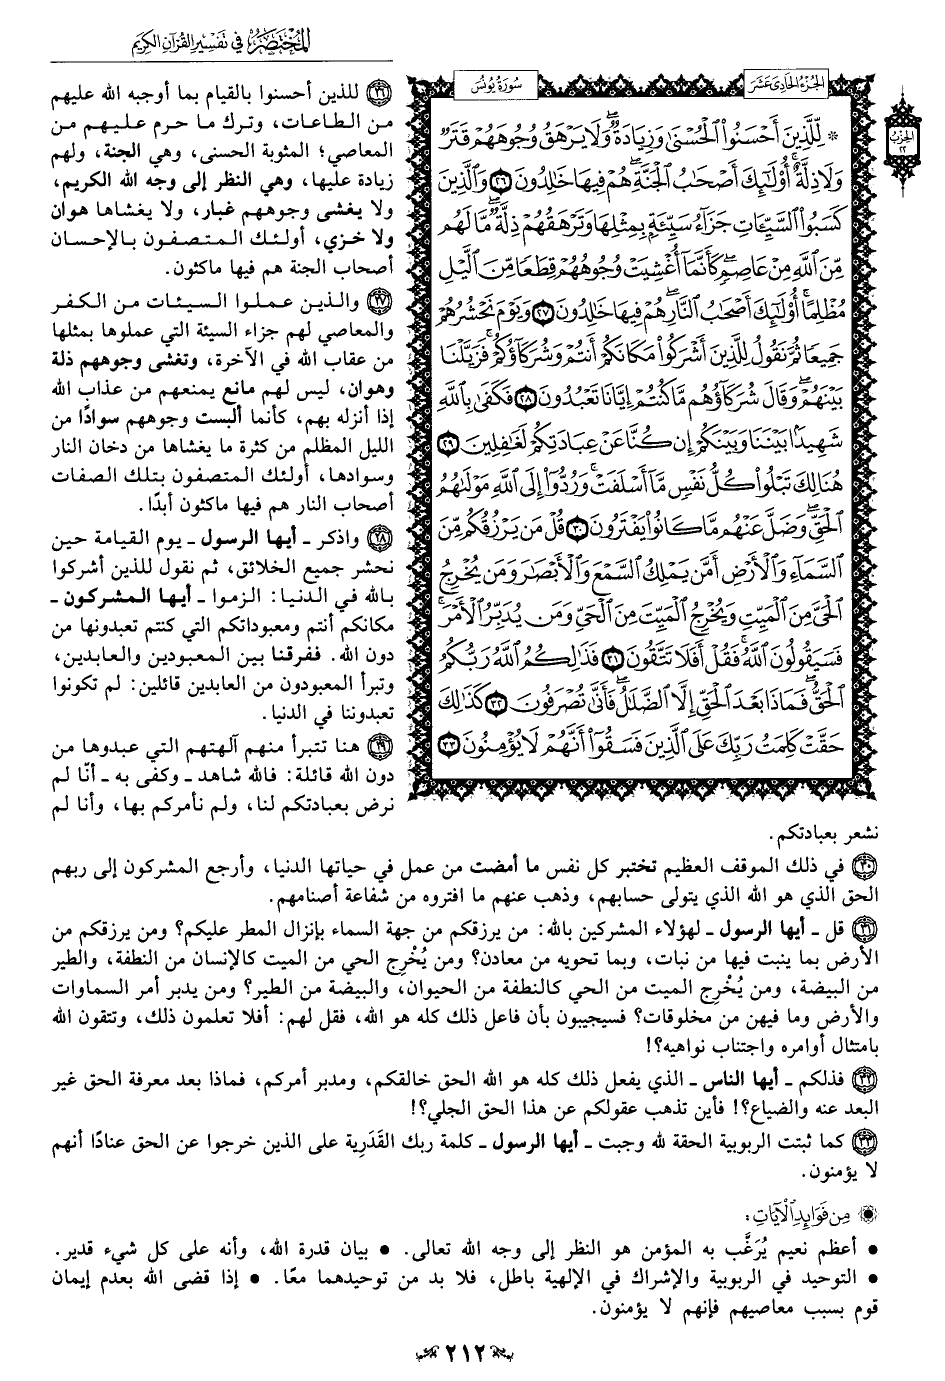 المختصر في تفسير القرآن الكريم
الجزء الحادي عشر
سورة يونس
الحزب ٢٢
۞ لِّلَّذِينَ أَحْسَنُوا۟ ٱلْحُسْنَىٰ وَزِيَادَةٌ ۖ وَلَا يَرْهَقُ وُجُوهَهُمْ قَتَرٌ
وَلَا ذِلَّةٌ ۚ أُو۟لَٰٓئِكَ أَصْحَٰبُ ٱلْجَنَّةِ ۖ هُمْ فِيهَا خَٰلِدُونَ ٢٦ وَٱلَّذِينَ
كَسَبُوا۟ ٱلسَّيِّـَٔاتِ جَزَآءُ سَيِّئَةٍۭ بِمِثْلِهَا وَتَرْهَقُهُمْ ذِلَّةٌ ۖ مَّا لَهُم
مِّنَ ٱللَّهِ مِنْ عَاصِمٍ ۖ كَأَنَّمَآ أُغْشِيَتْ وُجُوهُهُمْ قِطَعًا مِّنَ ٱلَّيْلِ
مُظْلِمًا ۚ أُو۟لَٰٓئِكَ أَصْحَٰبُ ٱلنَّارِ ۖ هُمْ فِيهَا خَٰلِدُونَ ٢٧ وَيَوْمَ نَحْشُرُهُمْ
جَمِيعًا ثُمَّ نَقُولُ لِلَّذِينَ أَشْرَكُوا۟ مَكَانَكُمْ أَنتُمْ وَشُرَكَآؤُكُمْ ۚ فَزَيَّلْنَا
بَيْنَهُمْ ۖ وَقَالَ شُرَكَآؤُهُم مَّا كُنتُمْ إِيَّانَا تَعْبُدُونَ ٢٨ فَكَفَىٰ بِٱللَّهِ
شَهِيدًۢا بَيْنَنَا وَبَيْنَكُمْ إِن كُنَّا عَنْ عِبَادَتِكُمْ لَغَٰفِلِينَ ٢٩
هُنَالِكَ تَبْلُوا۟ كُلُّ نَفْسٍ مَّآ أَسْلَفَتْ ۚ وَرُدُّوٓا۟ إِلَى ٱللَّهِ مَوْلَىٰهُمُ
ٱلْحَقِّ ۖ وَضَلَّ عَنْهُم مَّا كَانُوا۟ يَفْتَرُونَ ٣٠ قُلْ مَن يَرْزُقُكُم مِّنَ
ٱلسَّمَآءِ وَٱلْأَرْضِ أَمَّن يَمْلِكُ ٱلسَّمْعَ وَٱلْأَبْصَٰرَ وَمَن يُخْرِجُ
ٱلْحَىَّ مِنَ ٱلْمَيِّتِ وَيُخْرِجُ ٱلْمَيِّتَ مِنَ ٱلْحَىِّ وَمَن يُدَبِّرُ ٱلْأَمْرَ ۚ
فَسَيَقُولُونَ ٱللَّهُ ۚ فَقُلْ أَفَلَا تَتَّقُونَ ٣١ فَذَٰلِكُمُ ٱللَّهُ رَبُّكُمُ
ٱلْحَقُّ ۖ فَمَاذَا بَعْدَ ٱلْحَقِّ إِلَّا ٱلضَّلَٰلُ ۖ فَأَنَّىٰ تُصْرَفُونَ ٣٢ كَذَٰلِكَ
حَقَّتْ كَلِمَتُ رَبِّكَ عَلَى ٱلَّذِينَ فَسَقُوٓا۟ أَنَّهُمْ لَا يُؤْمِنُونَ ٣٣
٢٦ للذين أحسنوا بالقيام بما أوجبه الله عليهم
من الطاعات، وترك ما حرم عليهم من
المعاصي؛ المثوبة الحسنى، وهي الجنة، ولهم
زيادة عليها، وهي النظر إلى وجه الله الكريم،
ولا يغشى وجوههم غبار، ولا يغشاها هوان
ولا خزي، أولئك المتصفون بالإحسان
أصحاب الجنة هم فيها ماكثون.
٢٧ والذين عملوا السيئات من الكفر
والمعاصي لهم جزاء السيئة التي عملوها بمثلها
من عقاب الله في الآخرة، وتغشى وجوههم ذلة
وهوان، ليس لهم مانع يمنعهم من عذاب الله
إذا أنزله بهم، كأنما ألبست وجوههم سوادًا من
الليل المظلم من كثرة ما يغشاها من دخان النار
وسوادها، أولئك المتصفون بتلك الصفات
أصحاب النار هم فيها ماكثون أبدًا.
٢٨ واذكر ـ أيها الرسول ـ يوم القيامة حين
نحشر جميع الخلائق، ثم نقول للذين أشركوا
بالله في الدنيا: الزموا ـ أيها المشركون ـ
مكانكم أنتم ومعبوداتكم التي كنتم تعبدونها من
دون الله. ففرقنا بين المعبودين والعابدين،
وتبرأ المعبودون من العابدين قائلين: لم تكونوا
تعبدوننا في الدنيا.
٢٩ هنا تتبرأ منهم آلهتهم التي عبدوها من
دون الله قائلة: فالله شاهد ـ وكفى به ـ أنّا لم
نرض بعبادتكم لنا، ولم نأمركم بها، وأنا لم
نشعر بعبادتكم.
٣٠ في ذلك الموقف العظيم تختبر كل نفس ما أمضت من عمل في حياتها الدنيا، وأرجع المشركون إلى ربهم
الحق الذي هو الله الذي يتولى حسابهم، وذهب عنهم ما افتروه من شفاعة أصنامهم.
٣١ قل ـ أيها الرسول ـ لهؤلاء المشركين بالله: من يرزقكم من جهة السماء بإنزال المطر عليكم؟ ومن يرزقكم من
الأرض بما ينبت فيها من نبات، وبما تحويه من معادن؟ ومن يُخْرِج الحي من الميت كالإنسان من النطفة، والطير
من البيضة، ومن يُخْرِج الميت من الحي كالنطفة من الحيوان، والبيضة من الطير؟ ومن يدبر أمر السماوات
والأرض وما فيهن من مخلوقات؟ فسيجيبون بأن فاعل ذلك كله هو الله، فقل لهم: أفلا تعلمون ذلك، وتتقون الله
بامتثال أوامره واجتناب نواهيه؟!
٣٢ فذلكم ـ أيها الناس ـ الذي يفعل ذلك كله هو الله الحق خالقكم، ومدبر أمركم، فماذا بعد معرفة الحق غير
البعد عنه والضياع؟! فأين تذهب عقولكم عن هذا الحق الجلي؟!
٣٣ كما ثبتت الربوبية الحقة لله وجبت ـ أيها الرسول ـ كلمة ربك القَدَرِية على الذين خرجوا عن الحق عنادًا أنهم
لا يؤمنون.
من فوائد الآيات:
• أعظم نعيم يُرَغَّب به المؤمن هو النظر إلى وجه الله تعالى. • بيان قدرة الله، وأنه على كل شيء قدير.
• التوحيد في الربوبية والإشراك في الإلهية باطل، فلا بد من توحيدهما معًا. • إذا قضى الله بعدم إيمان
قوم بسبب معاصيهم فإنهم لا يؤمنون.
٢١٢